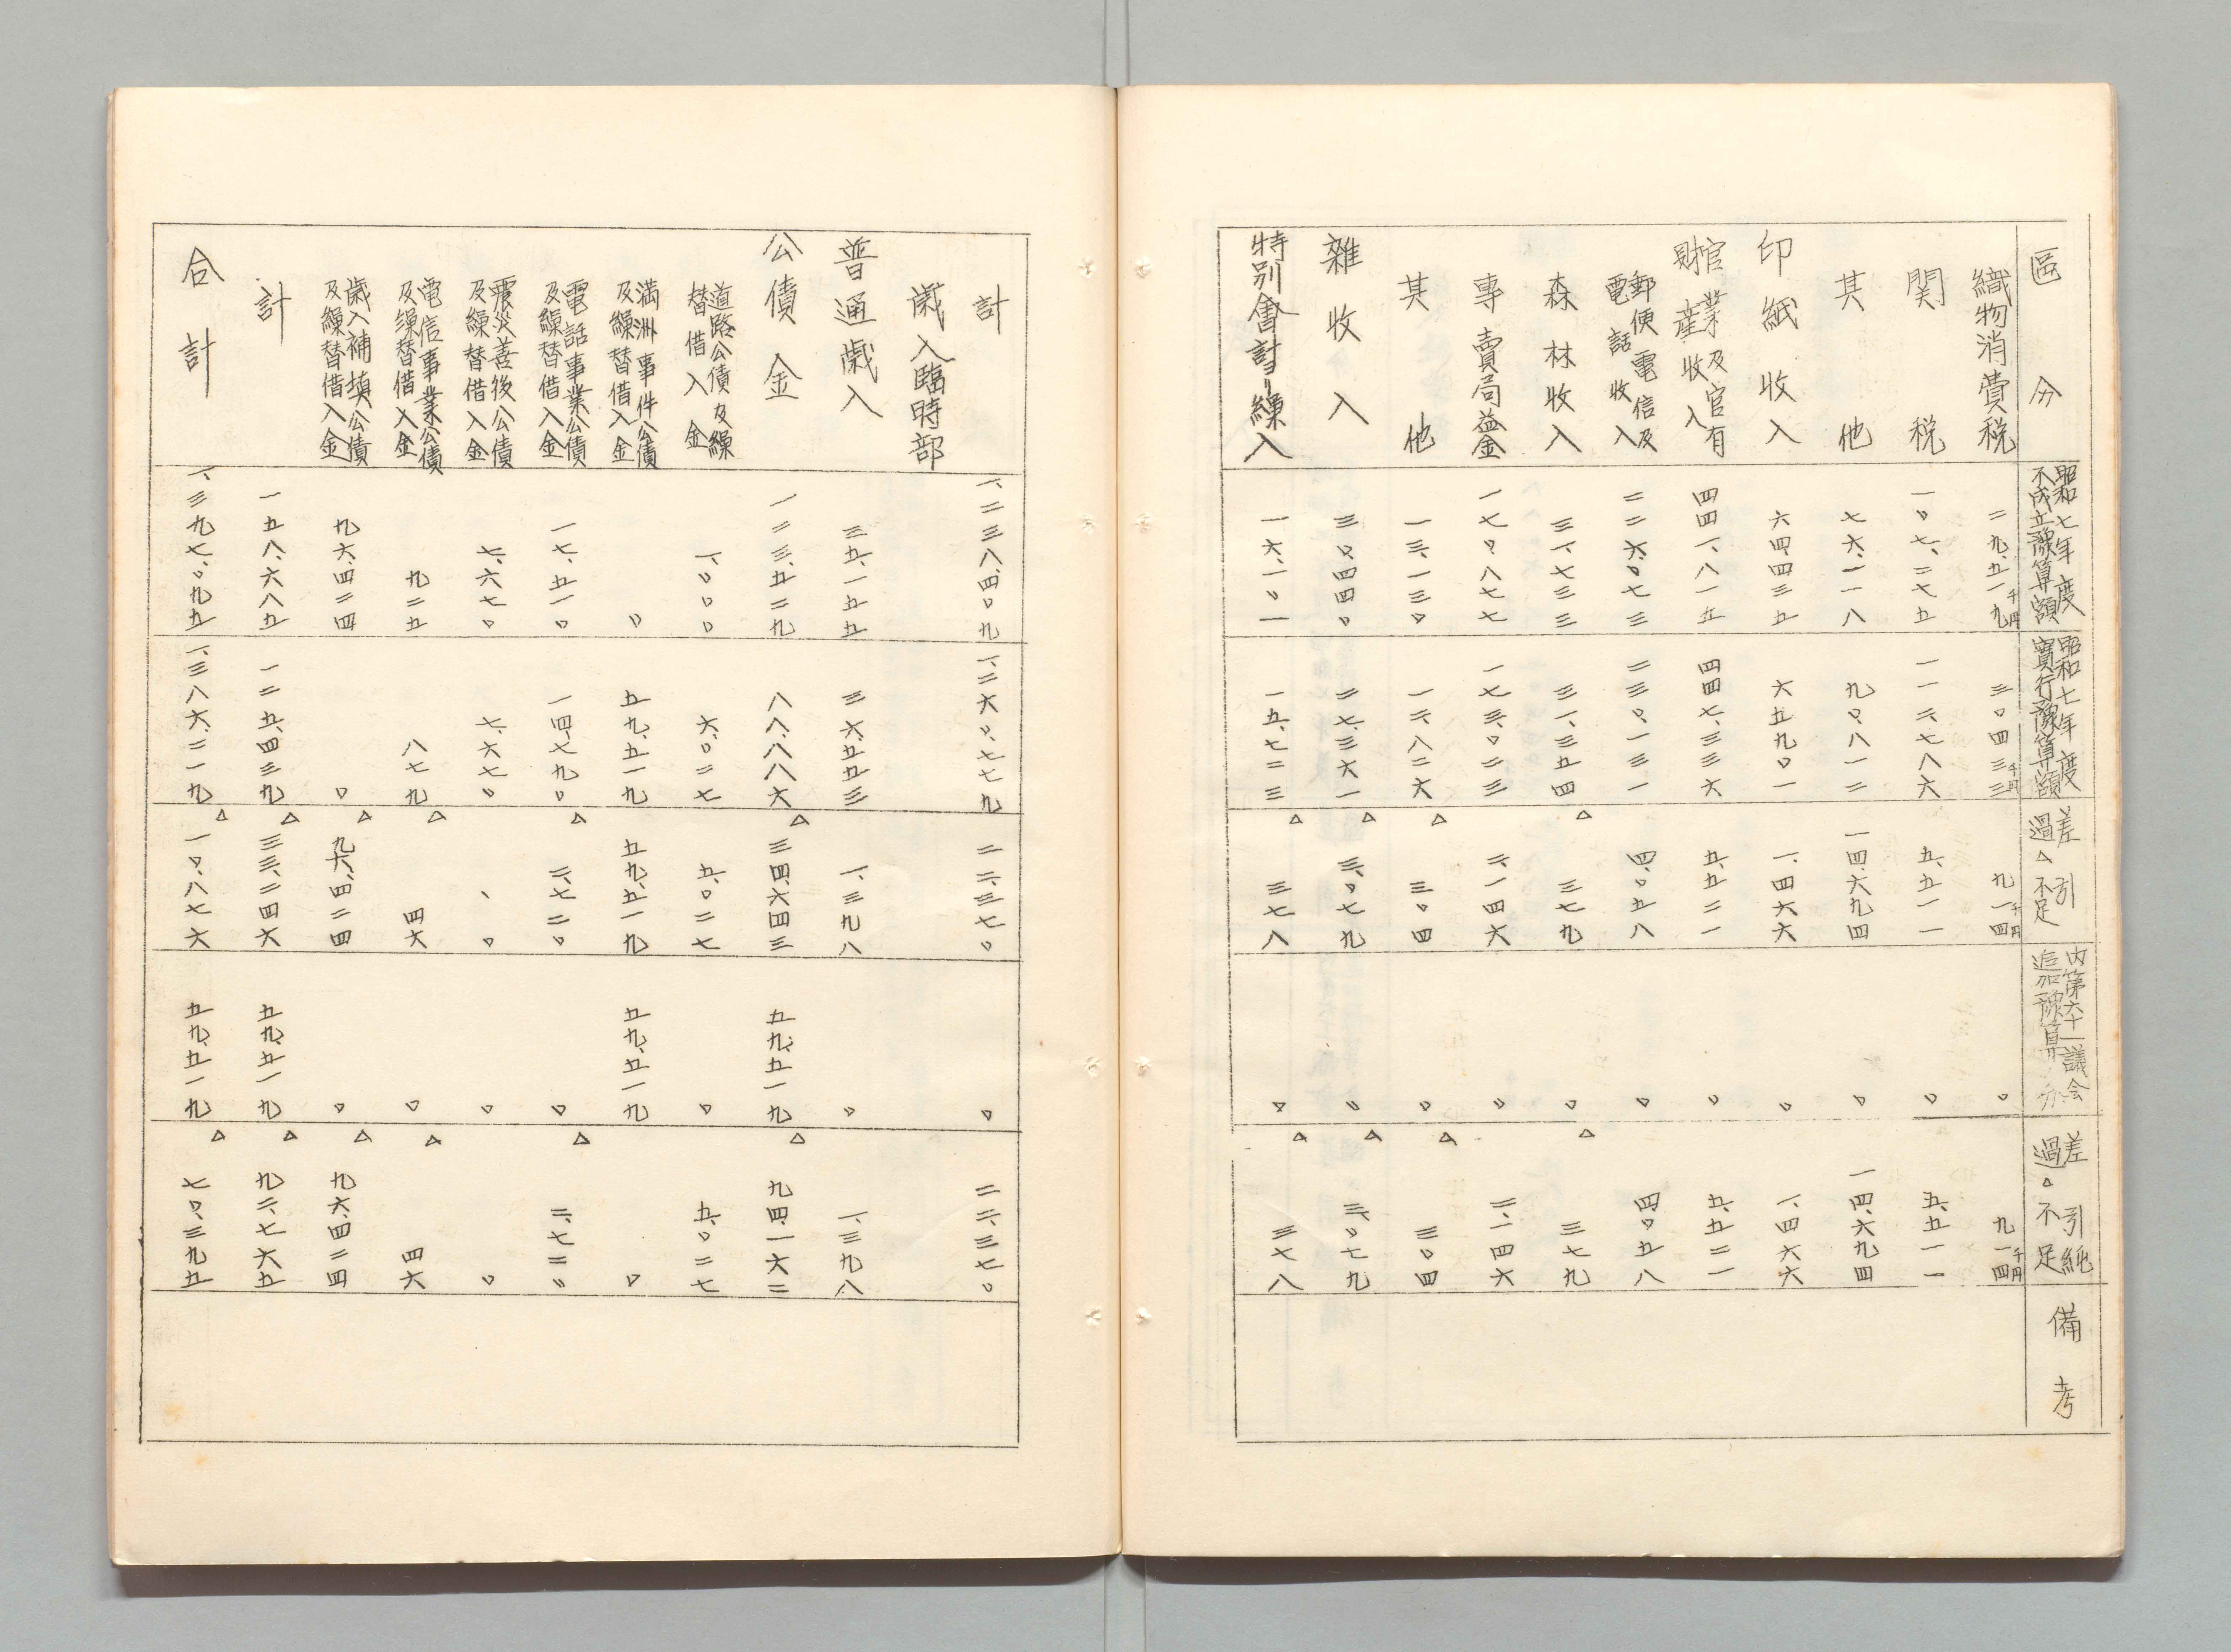 區分 昭和七年度不成立豫算額 昭和七年度實行豫算額 差引過△不足 内第六十一議会追加豫算分 差引純過△不足 備考
織物消費税 二九、五一九千円 三〇四三三千円 九一四千円 〇 九一四千円
関税 一〇七、二七五 一一二、七八六 五、五一一 〇 五、五一一
其他 七六、一一八 九〇、八一二 一四、六九四 〇 一四、六九四
印紙收入 六四四三五 六五九〇一 一、四六六 〇 一、四六六
官業及官有財産收入 四四一、八一五 四四七、三三六 五、五二一 〇 五、五二一
郵便電信及電話收入 二二六、〇七三 二三〇、一三一 四、〇五八 〇 四、〇五八
森林收入 三一、七三三 三一、三五四 △三七九 〇 △三七九
專賣局益金 一七〇、八七七 一七三、〇二三 二、一四六 〇 二、一四六
其他 一三、一三〇 一二、八二六 △三〇四 〇 △三〇四
雜收入 三〇、四四〇 二七、三六一 △三、〇七九 〇 △三、〇七九
特別會計ヨリ繰入 一六、一〇一 一五、七二三 △三七八 〇 △三七八
計 一、二三八、四〇九 一、二六〇、七七九 二二、三七〇 〇 二二、三七〇
歳入臨時部
普通歳入 三五、一五五 三六、五五三 一、三九八 〇 一、三九八
公債金 一二三、五二九 八八、八八六 △三四、六四三 五九、五一九 △九四、一六二
道路公債及繰替借入金 一、〇〇〇 六、〇二七 五、〇二七 〇 五、〇二七
満洲事件公債及繰替借入金 〇 五九、五一九 五九、五一九 五九、五一九 〇
電話事業公債及繰替借入金 一七、五一〇 一四、七九〇 △二、七二〇 〇 △二、七二〇
震災善後公債及繰替借入金 七、六七〇 七、六七〇 、〇 〇 〇
電信事業公債及繰替借入金 九二五 八七九 △四六 〇 △四六
歳入補填公債及繰替借入金 九六、四二四 〇 △九六、四二四 〇 △九六、四二四
計 一五八、六八五 一二五、四三九 △三三、二四六 五九、五一九 △九二、七六五
合計 一、三九七、〇九五 一、三八六、二一九 △一〇、八七六 五九、五一九 △七〇、三九五